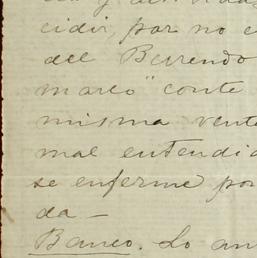 cidir, por no e
del Berrendo
marco" conte
misma vent
mal entendid
se enferme por
da —
Banco. Lo an